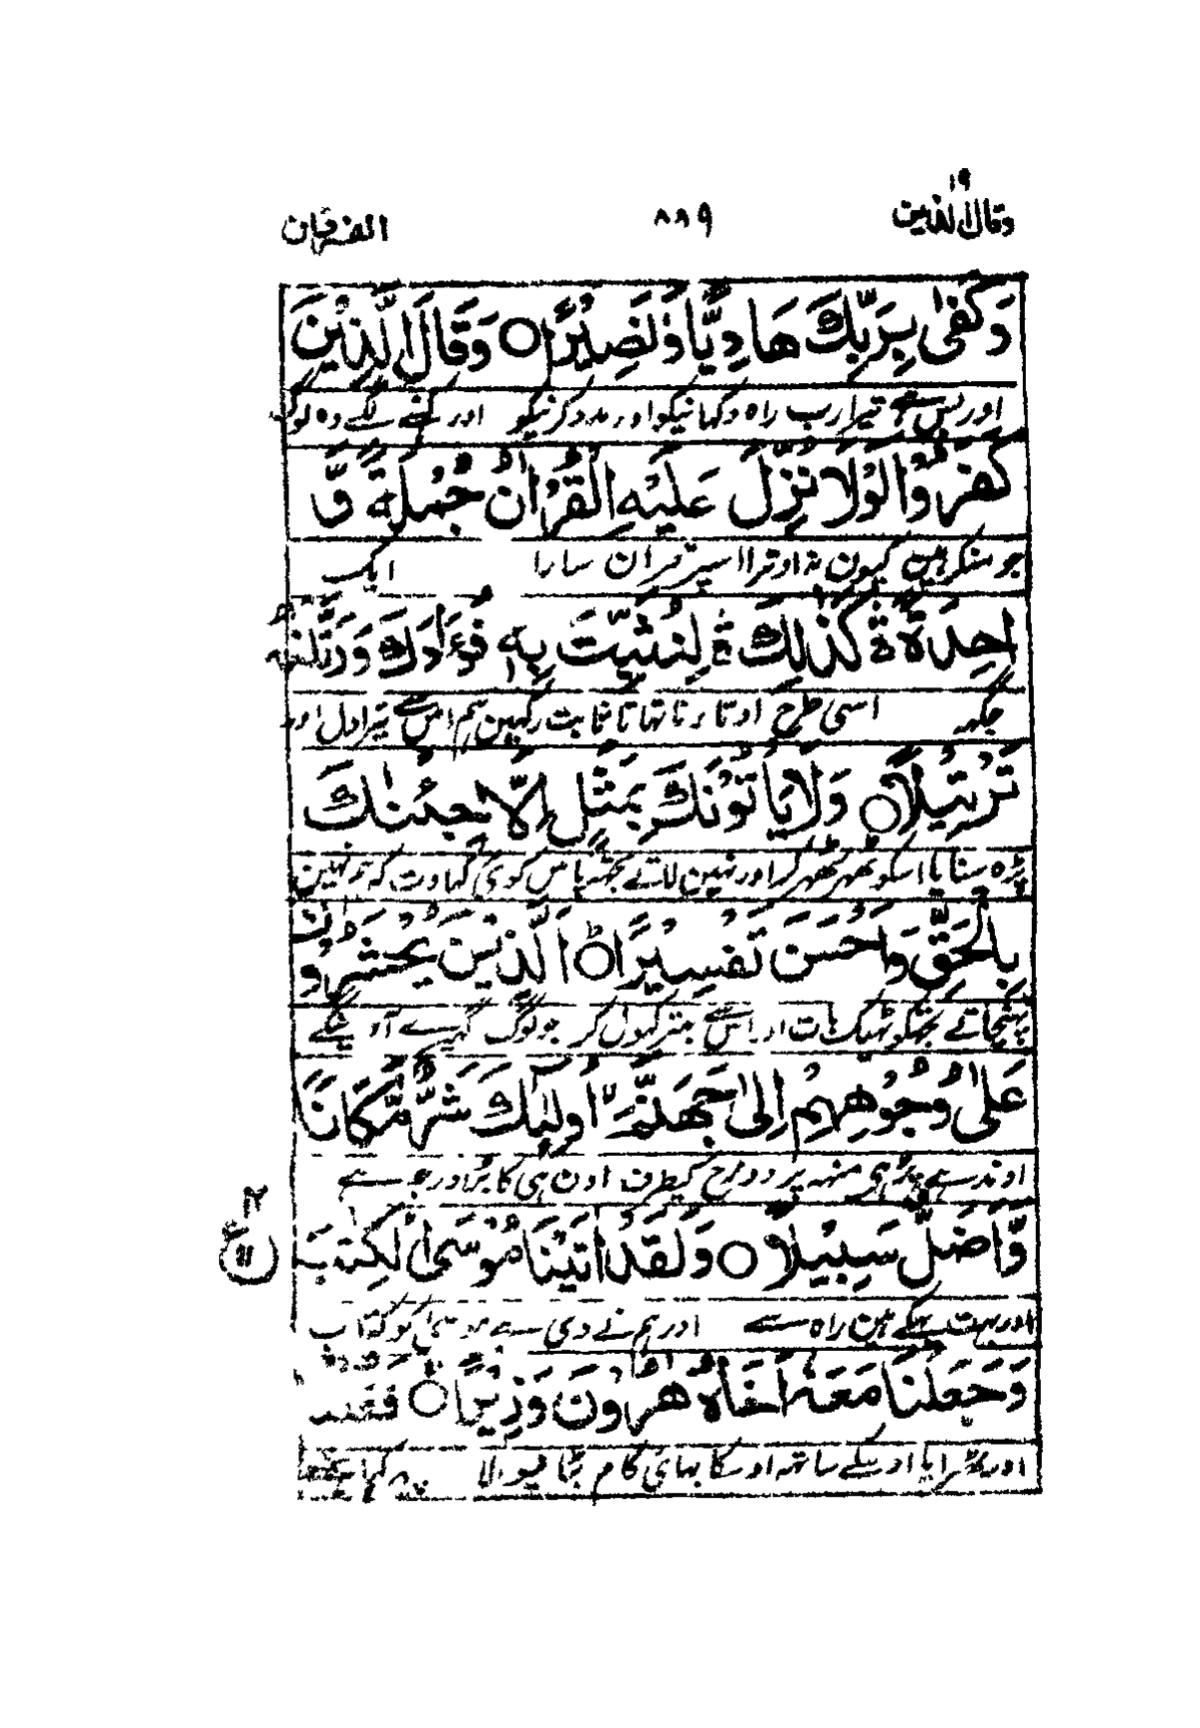 وقال الذین ۱۹
۸۸۹
الفرقان
وَكَفٰى بِرَبِّكَ هَادِيًّا وَّنَصِيْرًا ○ وَقَالَ الَّذِيْنَ
اور بس ہے تیرا رب راہ دکھانیکو اور مدد کرنیکو اور کہنے لگے وہ لوگ
كَفَرُوْا لَوْلَا نُزِّلَ عَلَيْهِ الْقُرْاٰنُ جُمْلَةً وَّ
جو منکر ہین کیون نہ اوترا اسپر قرآن سارا ایک
احِدَةً ۛ كَذٰلِكَ ۛ لِنُثَبِّتَ بِهٖ فُؤَادَكَ وَرَتَّلْنٰهُ
جگہ اسی طرح اوتارنا تھا تا ثابت رکھین ہم اس سے تیرا دل اور
تَرْتِيْلًا ○ وَلَا يَأْتُوْنَكَ بِمَثَلٍ اِلَّا جِئْنٰكَ
پڑہ سنایا اسکو ٹھہر ٹھہر کر اور نہین لاتے تجھ پاس کوئی کہاوت کہ ہم نہین
بِالْحَقِّ وَاَحْسَنَ تَفْسِيْرًا ○ؕ اَلَّذِيْنَ يُحْشَرُوْنَ
پہنچاتے تجھکو ٹھیک بات اور اس سے بہتر کھول کر جو لوگ گھیرے آوینگے
عَلٰى وُجُوْهِهِمْ اِلٰى جَهَنَّمَ ۙ اُولٰٓئِكَ شَرٌّ مَّكَانًا
اوندھے پڑے منہہ پر دوزخ کیطرف اون ہی کا برا درجہ ہے
وَّاَضَلُّ سَبِيْلًا ○ وَلَقَدْ اٰتَيْنَا مُوْسَى الْكِتٰبَ
اور بہت بہکے ہین راہ سے اور ہم نے دی ہے موسیٰ کو کتاب
وَجَعَلْنَا مَعَهٗٓ اَخَاهُ هٰرُوْنَ وَزِيْرًا ○ فَقُلْنَا
اور ٹہرایا اوسکے ساتھہ اوسکا بھائی کام بٹانیوالا پہر کہا ہمنے
ع